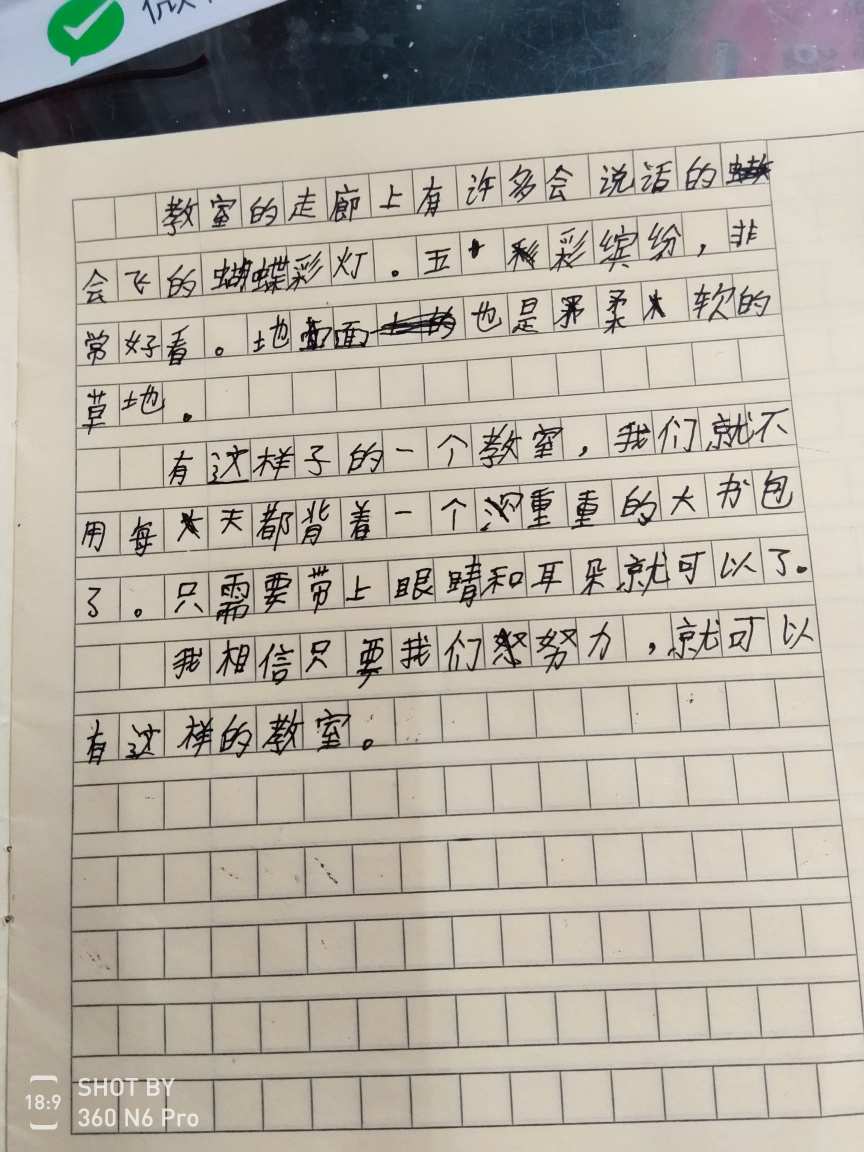 微
教室的走廊上有许多会说话的
会飞的蝴蝶彩灯。五彩缤纷，非
常好看。地面也是柔软的
草地。
有这样子的一个教室，我们就不
用每天都背着一个重重的大书包
了。只需要带上眼睛和耳朵就可以了。
我相信只要我们努力，就可以
有这样的教室。
18:9
SHOT BY
360 N6 Pro